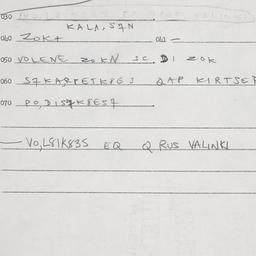 030
KALA, S7N
040 ZOK+ 041 —
050 VOLENE ZOKN SC. DI ZOK
060 S7KARPETKVES QAP KIRTSEP
070 PO, DIS7KBES7
— VO,L81K83S EQ Q RUS VALINKI